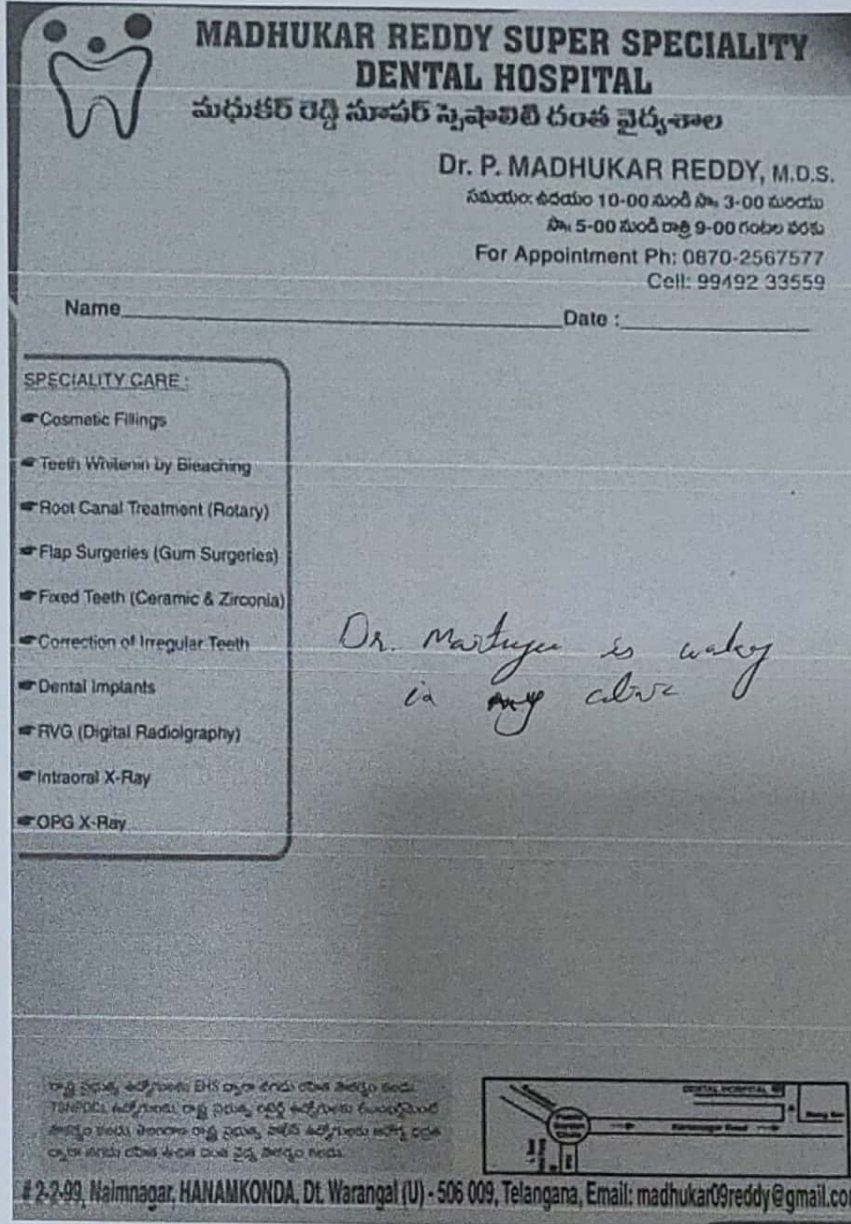 MADHUKAR REDDY SUPER SPECIALITY
DENTAL HOSPITAL
మధుకర్ రెడ్డి సూపర్ స్పెషాలిటి దంత వైద్యశాల
Dr. P. MADHUKAR REDDY, M.D.S.
సమయం: ఉదయం 10-00 నుండి సా॥ 3-00 మరియు
సా॥ 5-00 నుండి రాత్రి 9-00 గంటల వరకు
For Appointment Ph: 0870-2567577
Cell: 99492 33559
Name Date :
SPECIALITY CARE :
Cosmetic Fillings
Teeth Whitenin by Bleaching
Root Canal Treatment (Rotary)
Flap Surgeries (Gum Surgeries)
Fixed Teeth (Ceramic & Zirconia)
Correction of Irregular Teeth
Dental Implants
RVG (Digital Radiolgraphy)
Intraoral X-Ray
OPG X-Ray
Dr. is
in my
DENTAL HOSPITAL
Karimnagar Road
# 2-2-99, Naimnagar, HANAMKONDA, Dt. Warangal (U) - 506 009, Telangana, Email: madhukar09reddy@gmail.com